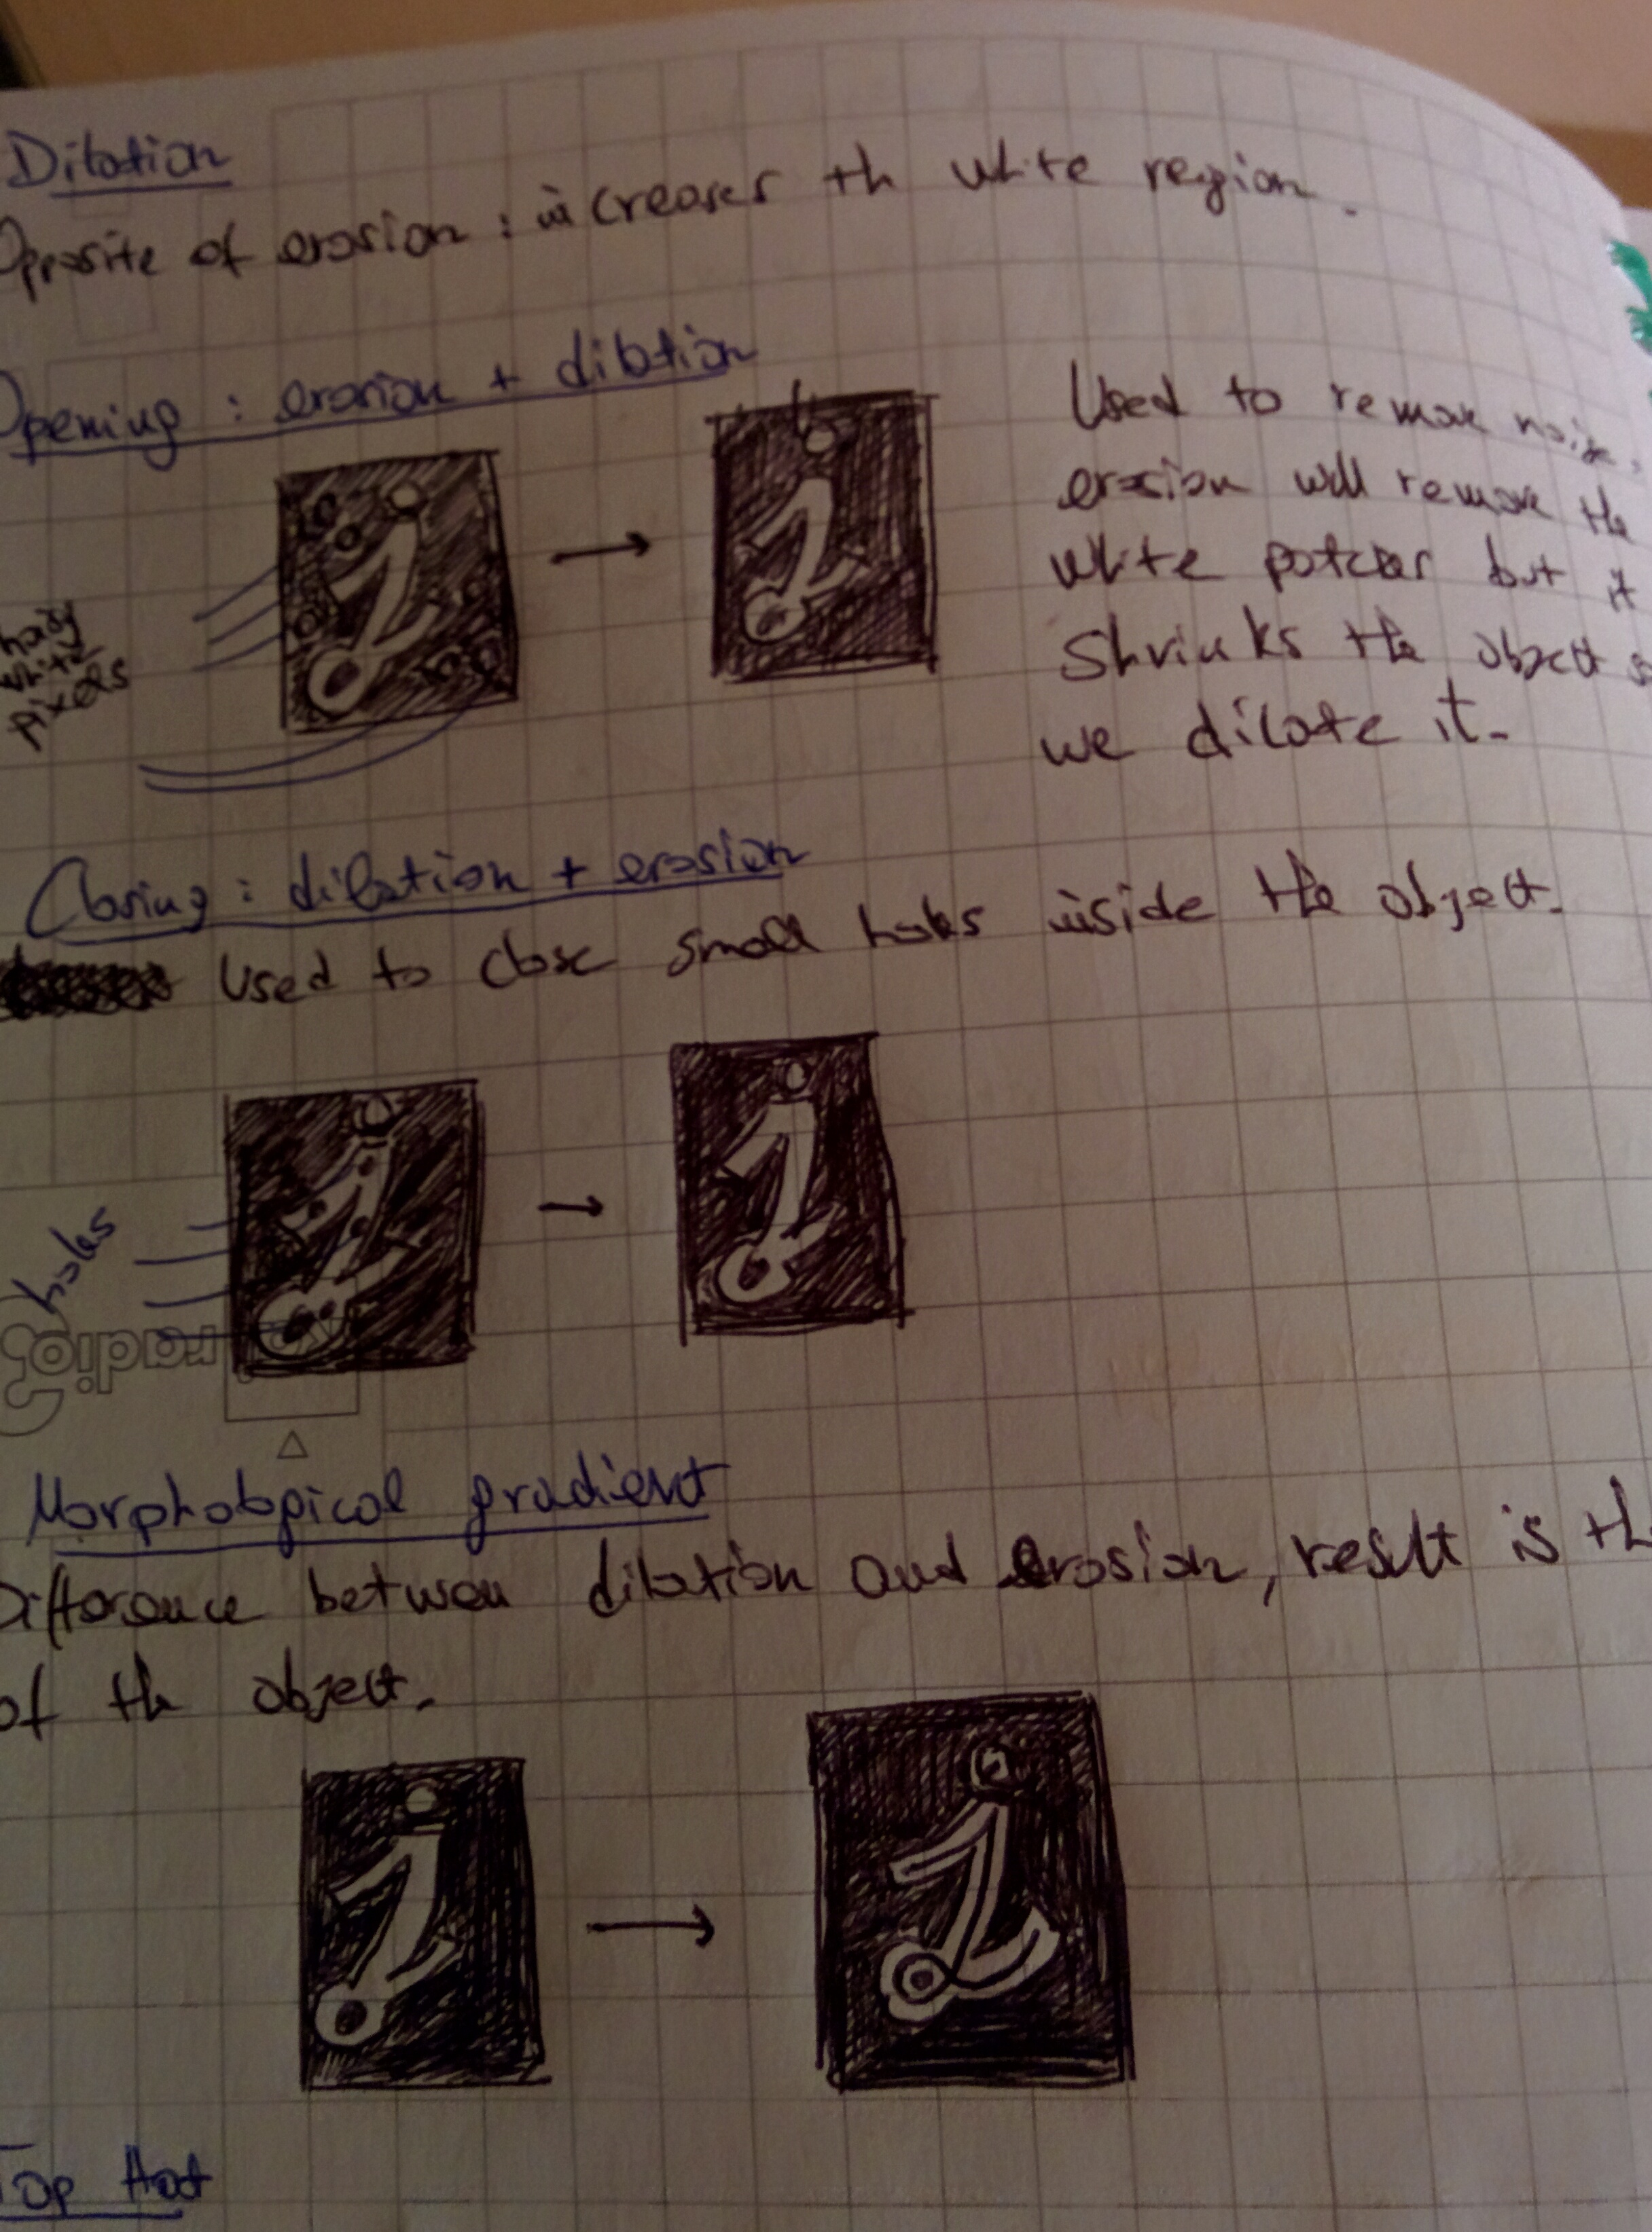 Dilation
Opposite of erosion : increases th white region.
Opening : erosion + dilation
Used to remove noise,
erosion will remove the
white patches but it
shrinks the object so
we dilate it.
white
pixels
Closing : dilation + erosion
Used to close small holes inside the object.
holes
radio
3
Morphological gradient
Difference between dilation and erosion, result is th
of th object.
Top Hat